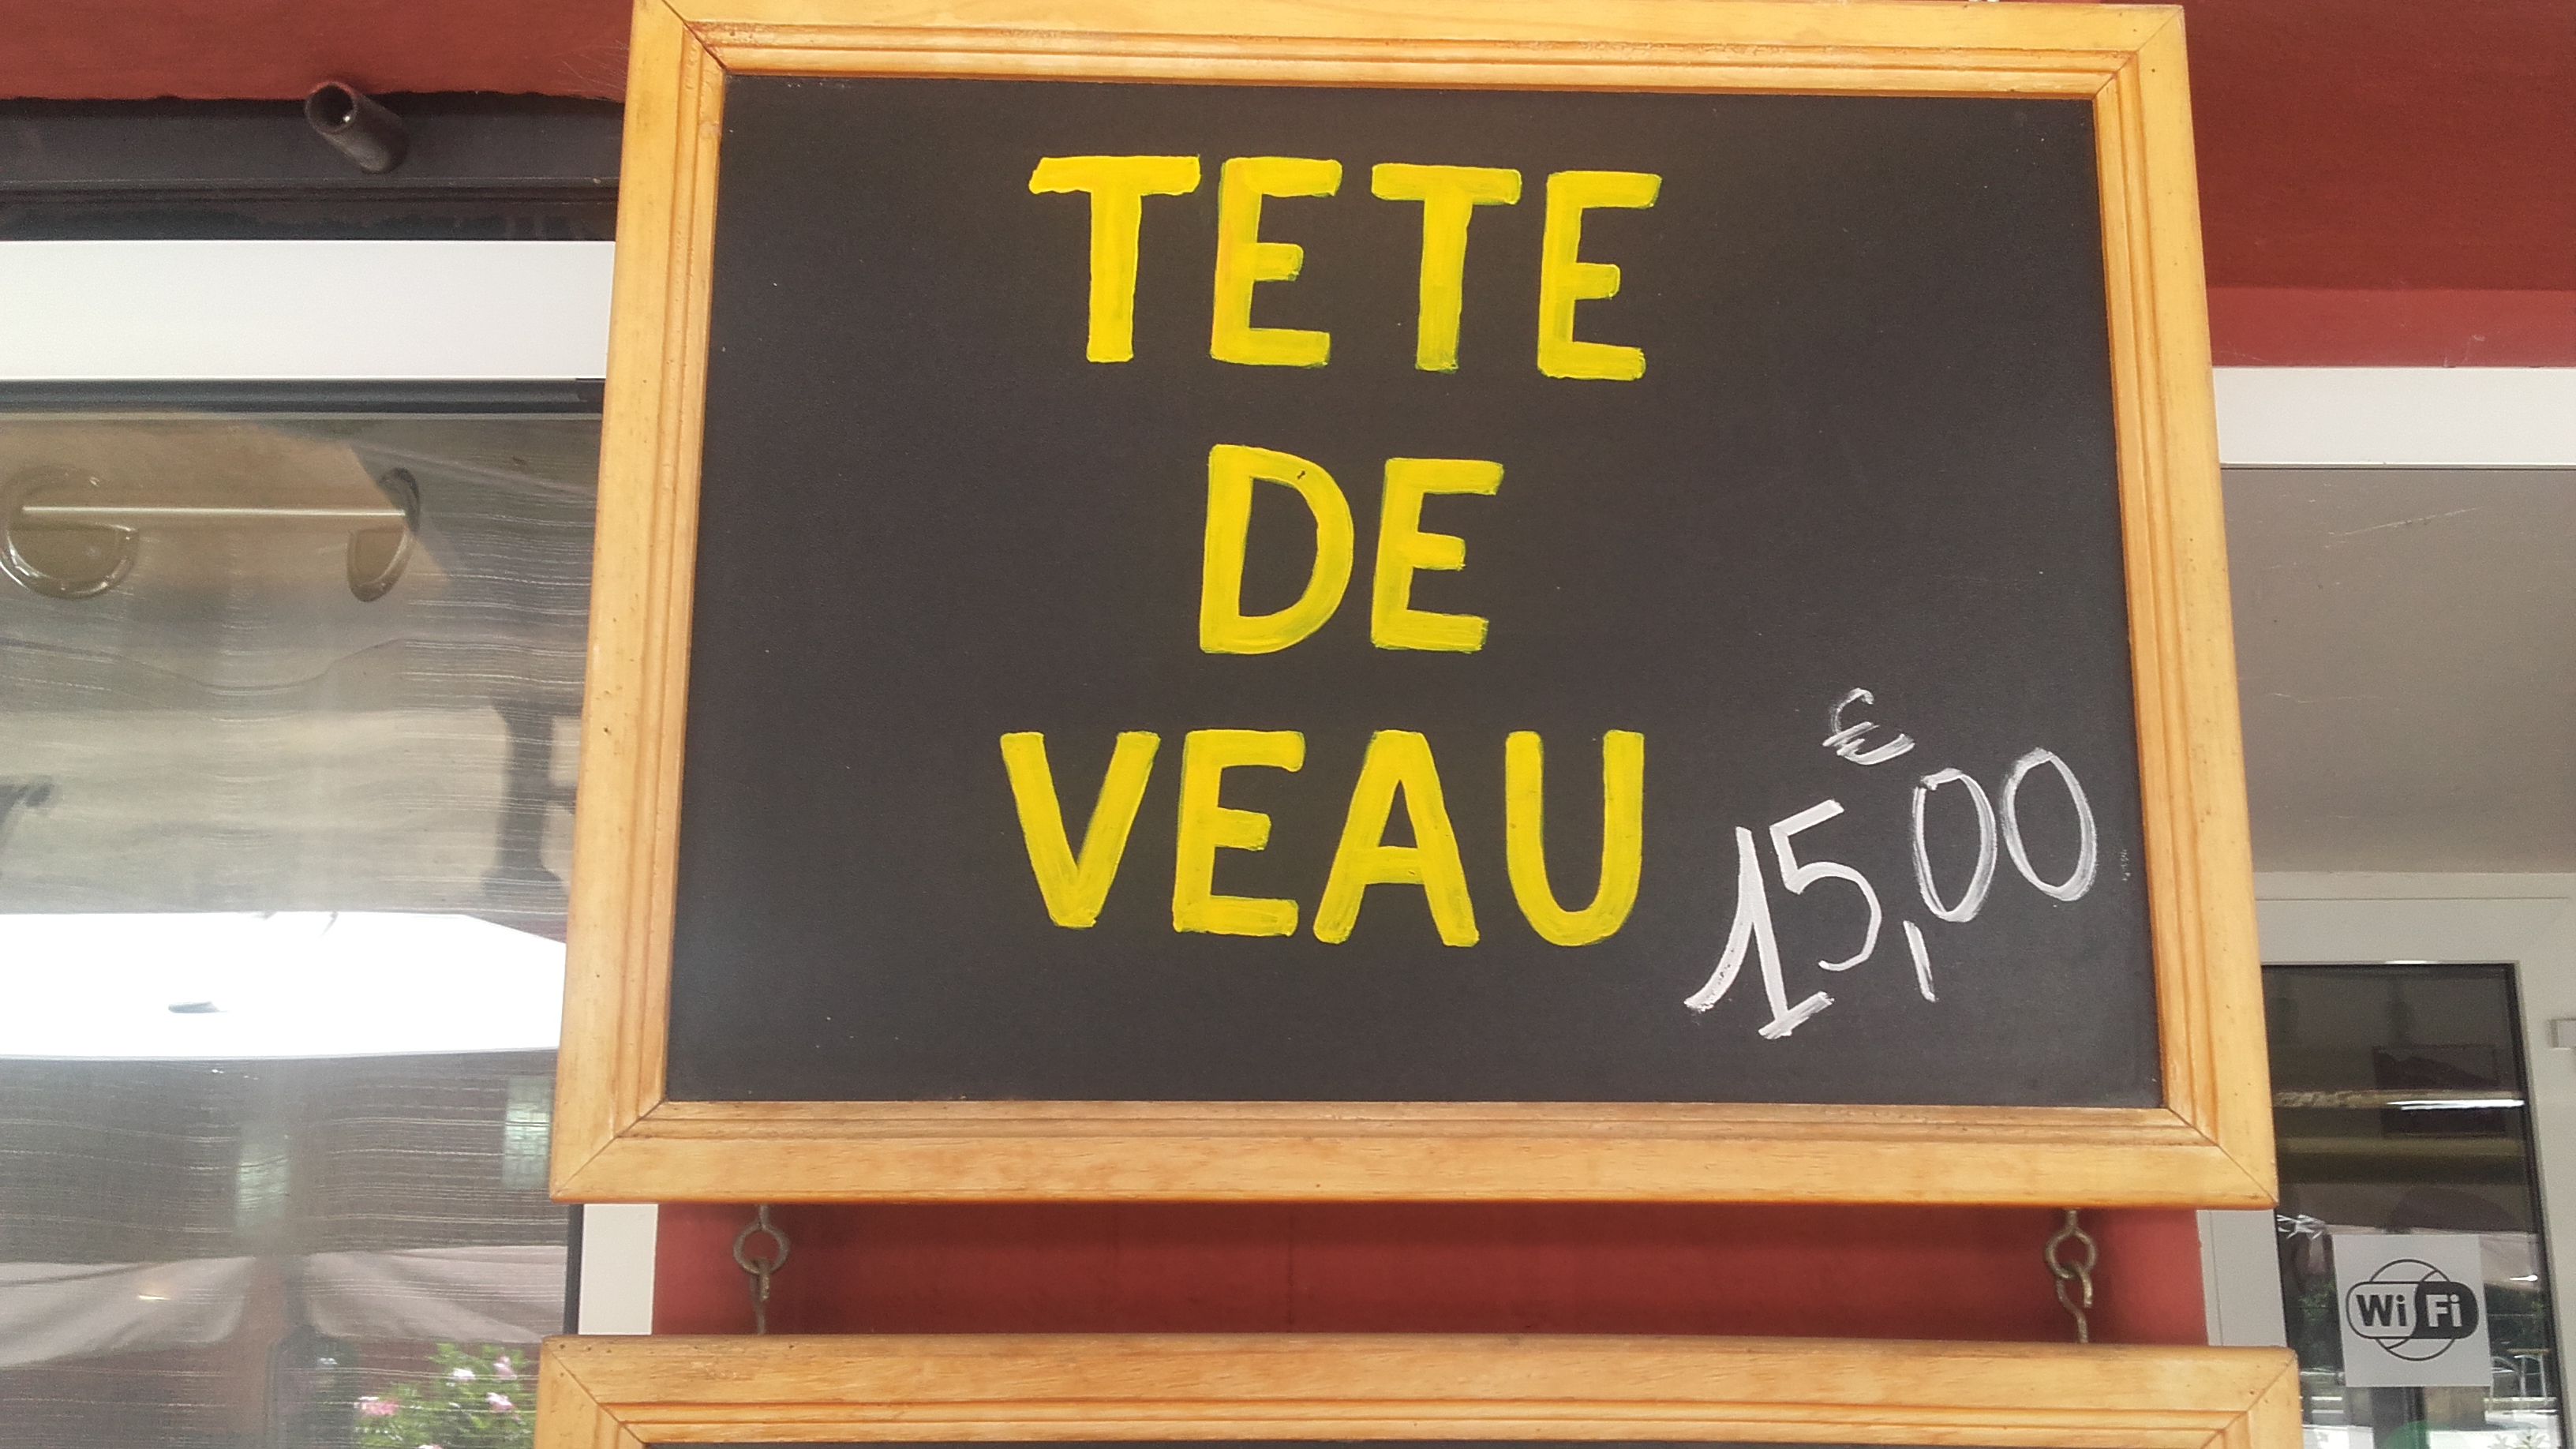 TETE
DE
VEAU
€
15,00
Wi Fi